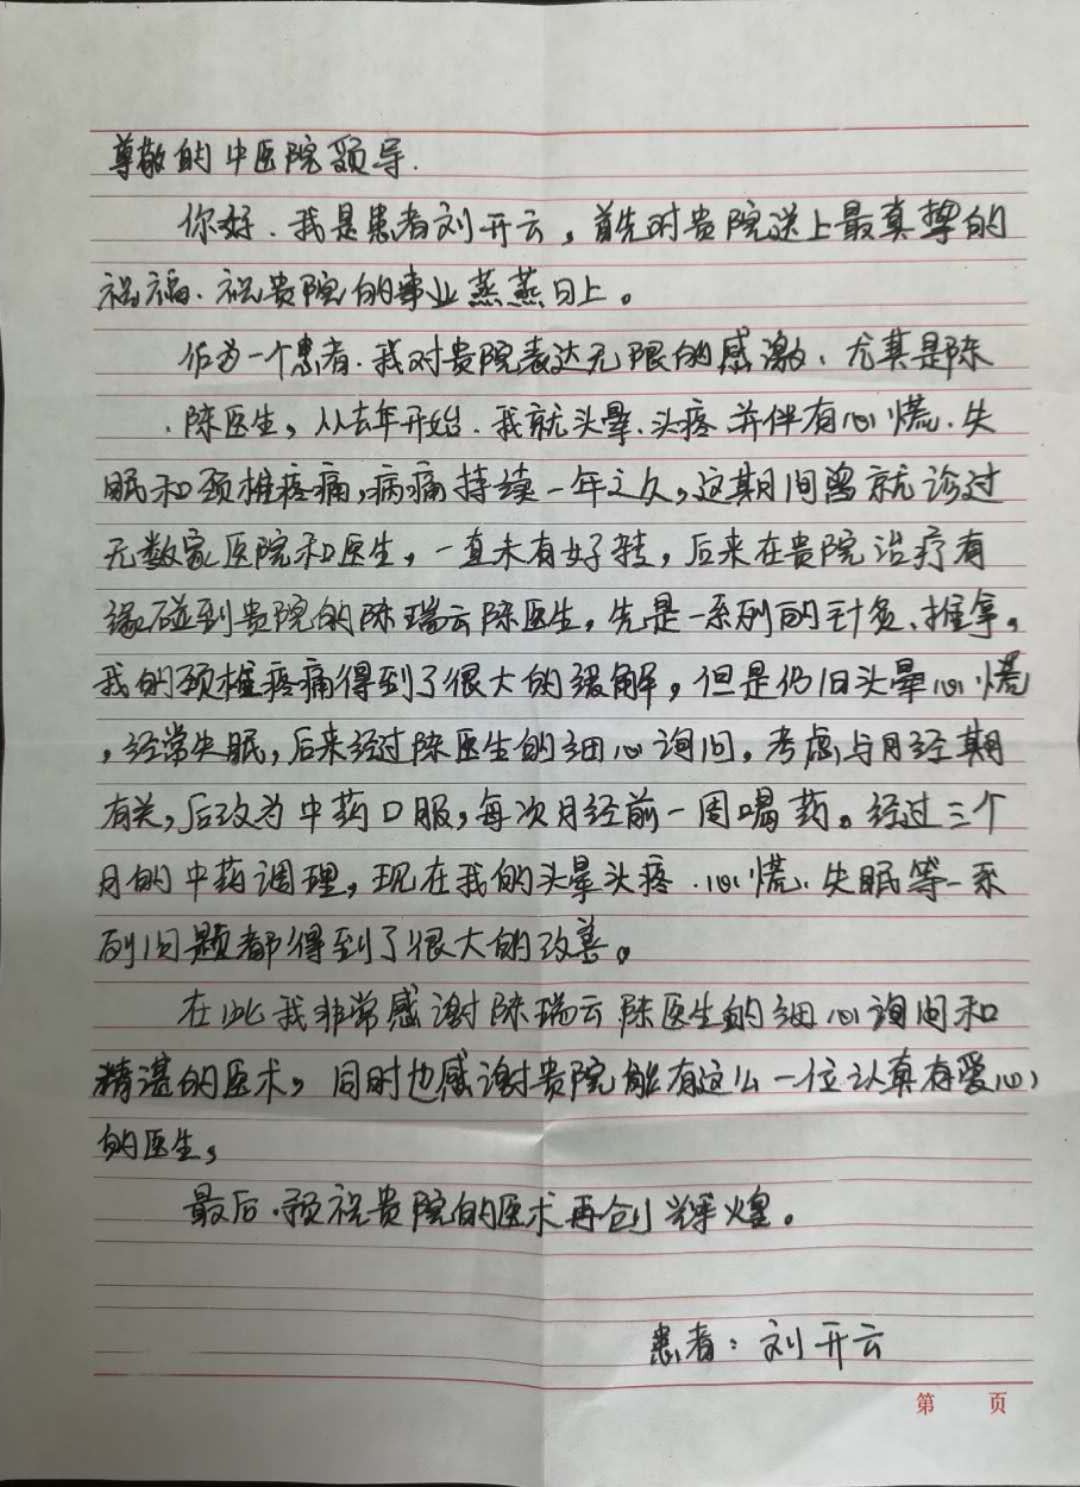 尊敬的中医院领导.
你好.我是患者刘开云,首先对贵院送上最真挚的
祝福.祝贵院的事业蒸蒸日上。
作为一个患者.我对贵院表达无限的感激、尤其是陈
.陈医生,从去年开始.我就头晕、头疼并伴有心慌、失
眠和颈椎疼痛,病痛持续一年之久,这期间曾就诊过
无数家医院和医生,一直未有好转,后来在贵院治疗有
缘碰到贵院的陈瑞云陈医生,先是一系列的针灸、推拿,
我的颈椎疼痛得到了很大的缓解,但是仍旧头晕心慌
,经常失眠,后来经过陈医生的细心询问,考虑与月经期
有关,后改为中药口服,每次月经前一周喝药。经过三个
月的中药调理,现在我的头晕头疼.心慌、失眠等一系
列问题都得到了很大的改善。
在此我非常感谢陈瑞云陈医生的细心询问和
精湛的医术,同时也感谢贵院能有这么一位认真有爱心
的医生,
最后.预祝贵院的医术再创辉煌。
患者:刘开云
第 页